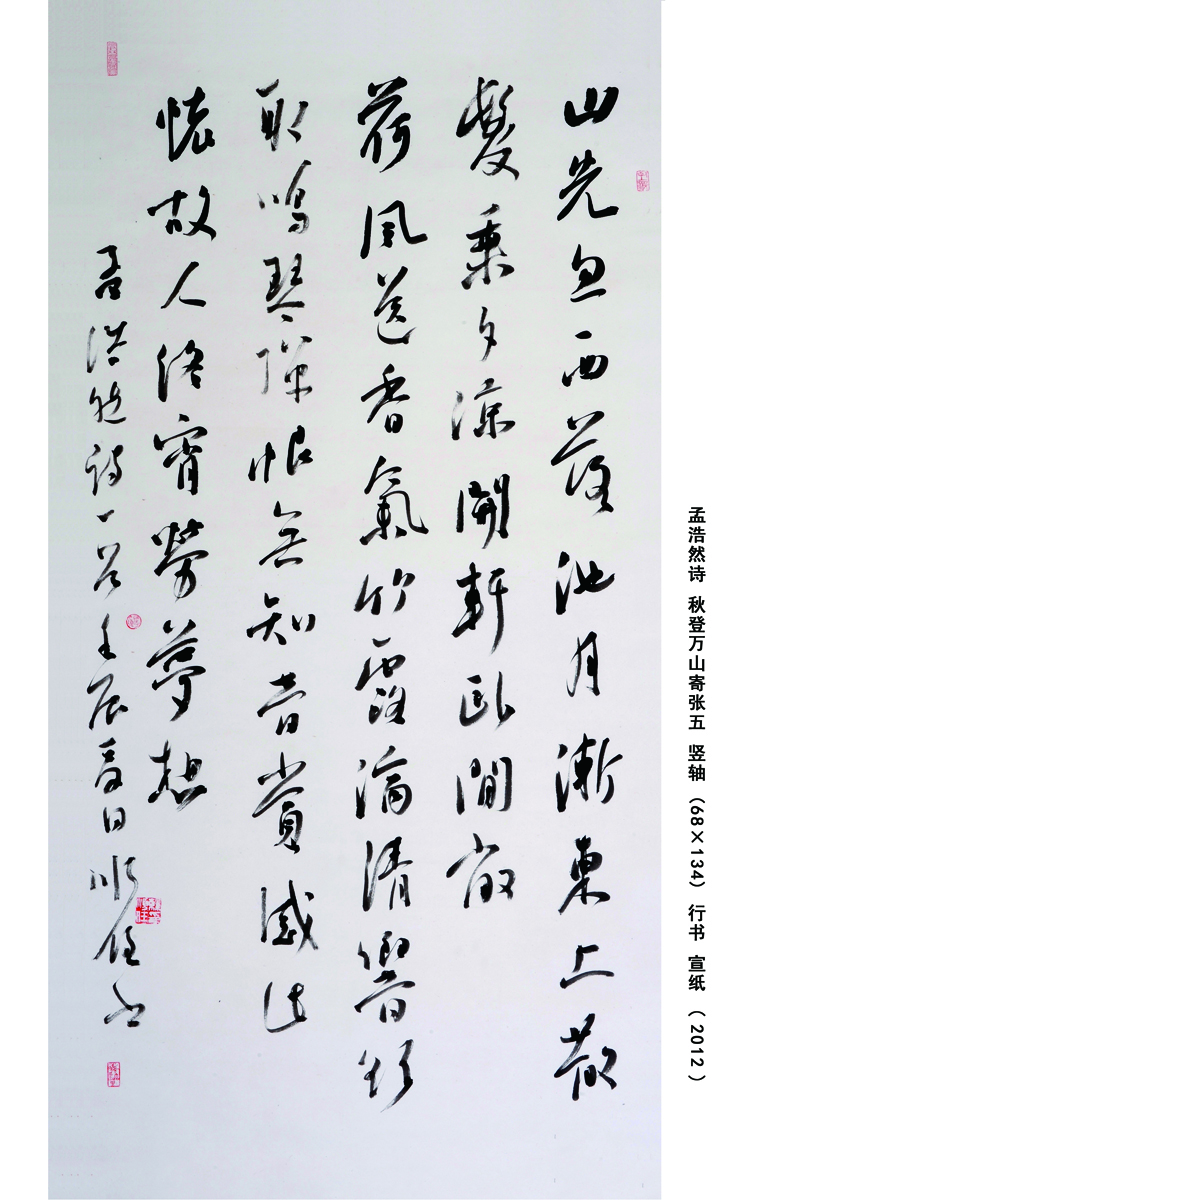 山光忽西落池月漸東上散
髮乘夕涼開軒臥間敞
荷風送香氣竹露滴清響欲
取鳴琴彈恨無知音賞感此
懷故人終宵勞夢想
孟浩然詩一首壬辰夏日順
孟浩然诗 秋登万山寄张五 竖轴 (68×134) 行书 宣纸 (2012)